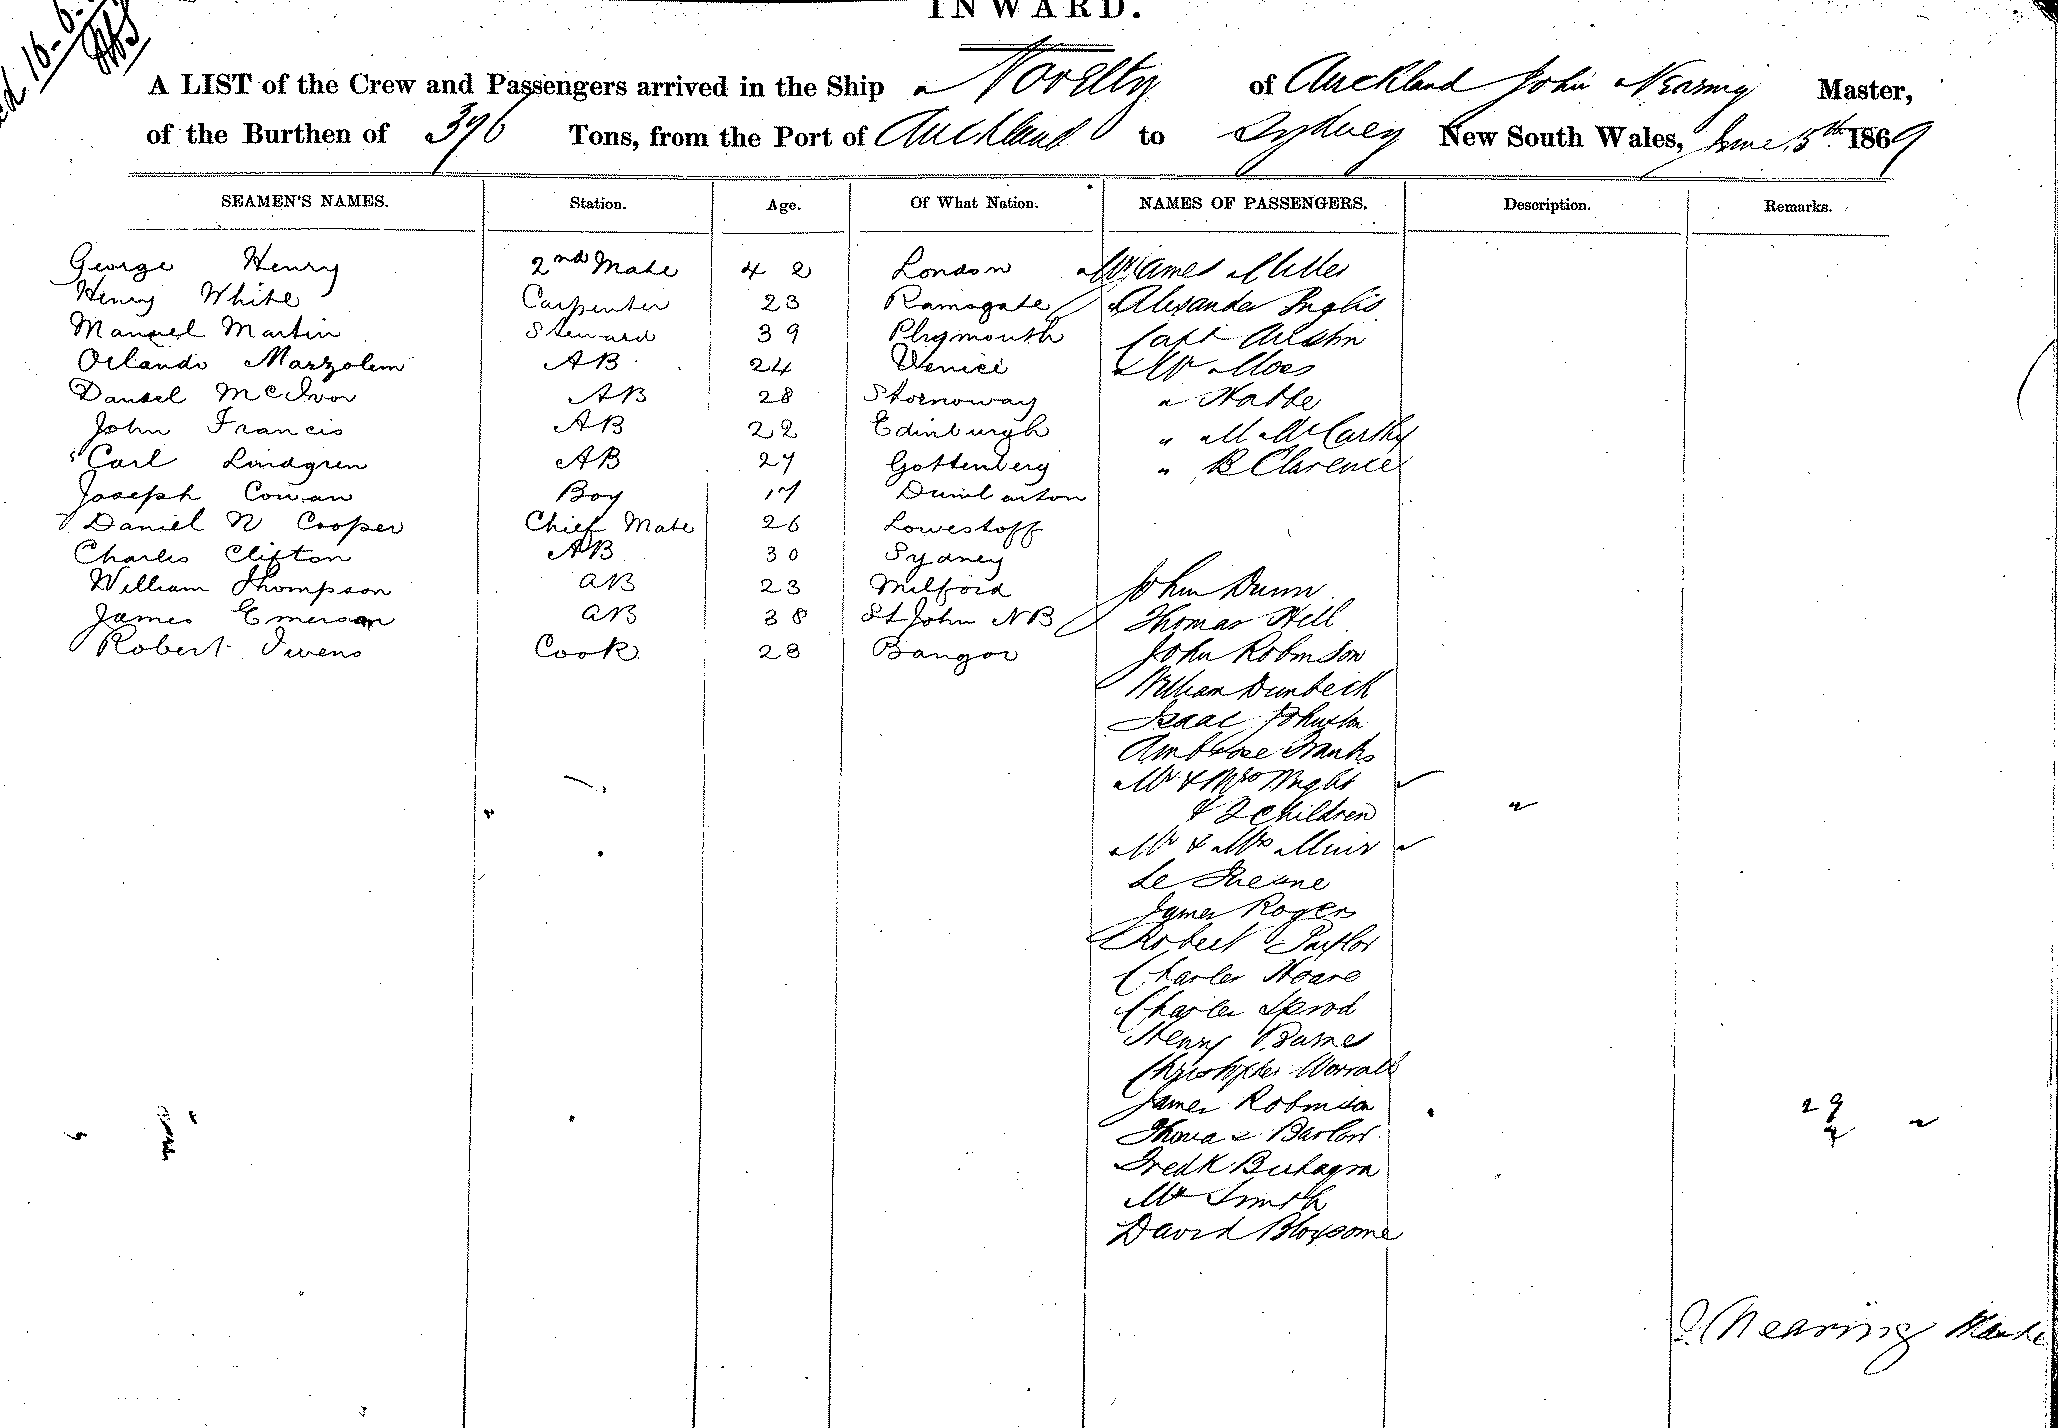 INWARD.
16-6-
A LIST of the Crew and Passengers arrived in the Ship Novelty of Auckland John Nearing Master,
of the Burthen of 396 Tons, from the Port of Auckland to Sydney New South Wales, June 15th 1869
SEAMEN'S NAMES. Station. Age. Of What Nation. NAMES OF PASSENGERS. Description. Remarks.
George Henry 2nd Mate 42 London James Miller
Henry White Carpenter 23 Ramsgate Alexander Inglis
Manuel Martin Steward 39 Plymouth Capt Austin
Orlando Marzolem AB 24 Venice Mr Moes
Daniel McIvor AB 28 Stornoway "
John Francis AB 22 Edinburgh " M McCarthy
Carl Lindgren AB 27 Gottenberg " R Clarence
Joseph Cowan Boy 17 Dumbarton
Daniel N Cooper Chief Mate 26 Lowestoff
Charles Clifton AB 30 Sydney
William Thompson AB 23 Milford John Dunn
James Emerson AB 38 St John NB Thomas Hill
Robert Owens Cook 28 Bangor John Robinson
William Dunbeck
Isaac Johnston
Ambrose Franks
Mr & Mrs Wright
& 2 children
Mr & Mrs Muir
Le
James Rogers
Robert Taylor
Charles Hoare
Charles Sprod
Henry Barnes
Christopher Worrall
James Robinson
Thomas Barlow
Fredk
Mr Smith
David Bloxsome
J Nearing Master